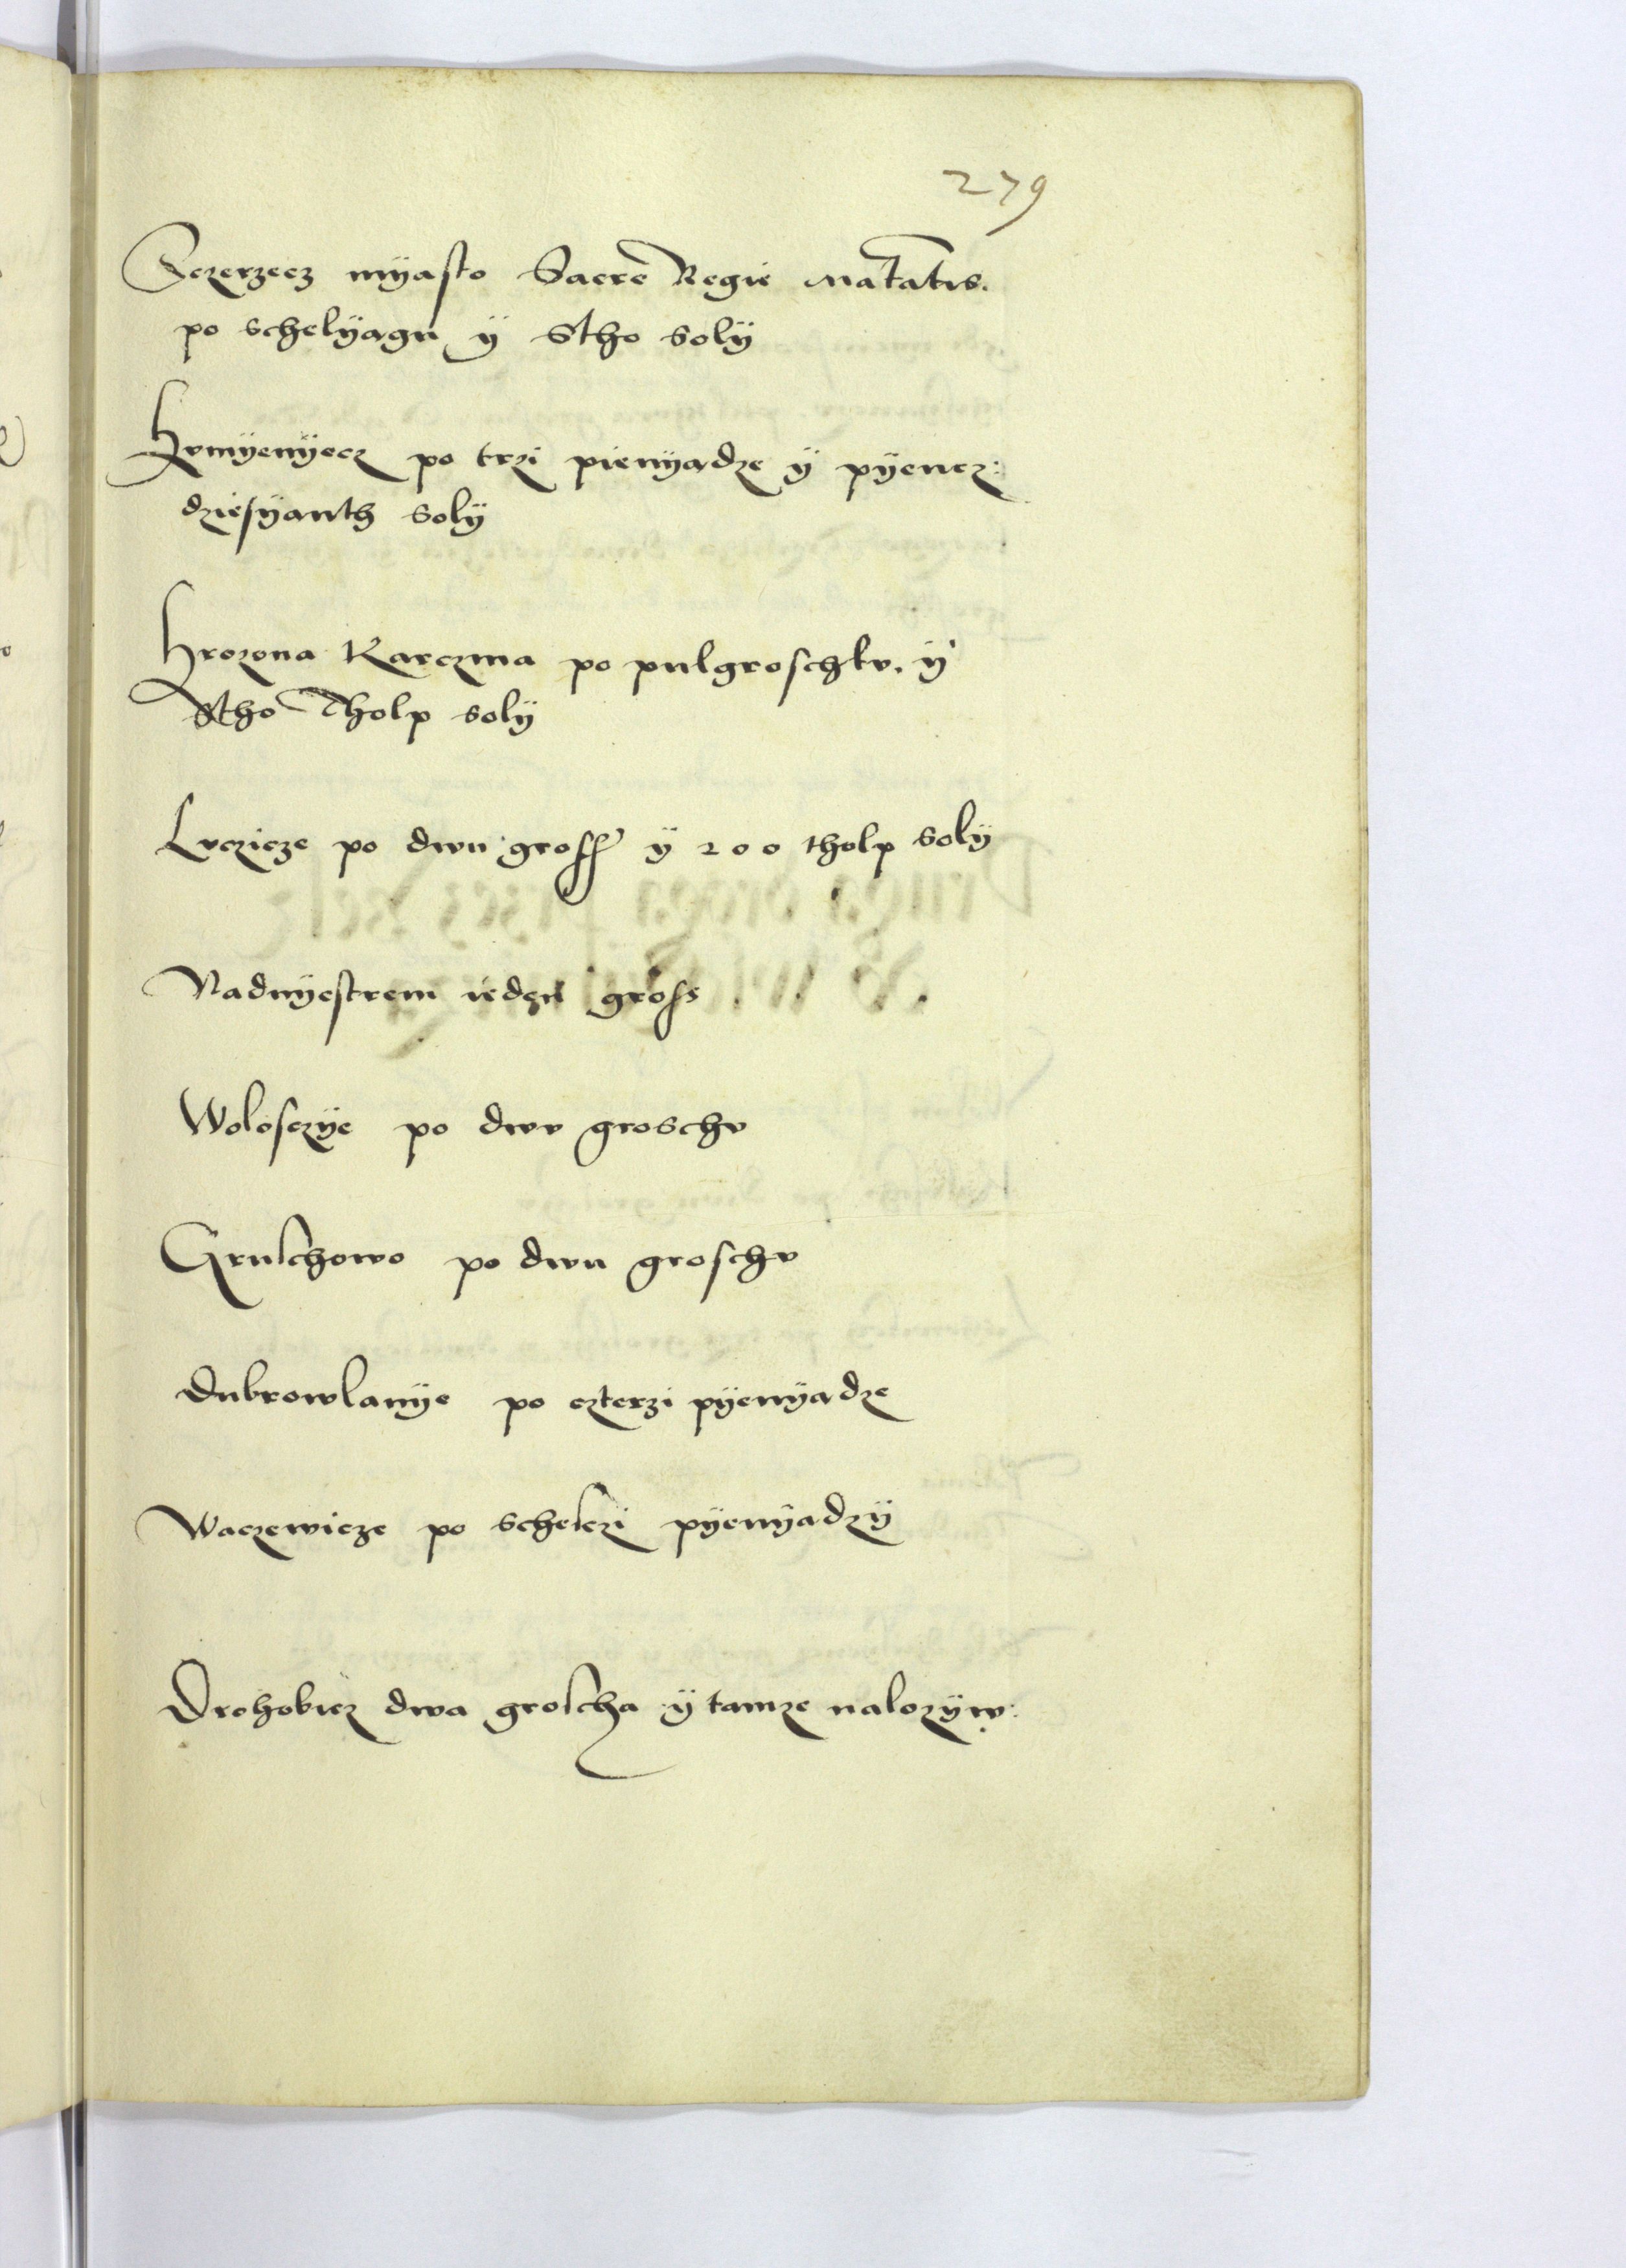 279
Sczerzecz myasto Sacre Regie Matatis.
po schelyagu ÿ Stho solÿ
Humÿenÿecz po trzi pienÿadze ÿ pÿencz:
dziesÿanth solÿ
Hrozona Karczma po pulgroschkv. ÿ
Stho Tholp solÿ
Luczicze po dwu gross ÿ 200 tholp solÿ
Nadnÿestrem ieden gross
Woloszcÿe po dwv groschv
Gruschowo po dwu groschv
Dubrowlanÿe po czterzi pÿenÿadze
Waczewicze po schesczi pÿenÿadzÿ
Drohobicz dwa groscha ÿ tamze nalozÿw: